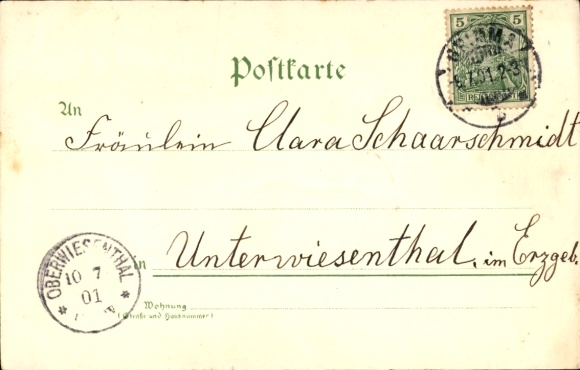 5 5
GRIMMA
Postkarte
An
Fräulein Clara Schaarschmidt
in Unterwiesenthal, im Erzgeb.
OBERWIESENTHAL
10 7
01
Wohnung
(Straße und Hausnummer)